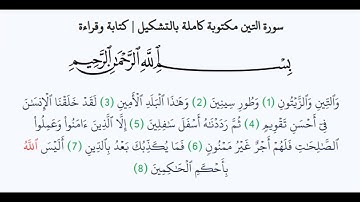 سورة التين مكتوبة كاملة بالتشكيل | كتابة وقراءة
بِسْمِ ٱللَّهِ ٱلرَّحْمَٰنِ ٱلرَّحِيمِ
وَٱلتِّينِ وَٱلزَّيْتُونِ (1) وَطُورِ سِينِينَ (2) وَهَٰذَا ٱلْبَلَدِ ٱلْأَمِينِ (3) لَقَدْ خَلَقْنَا ٱلْإِنسَٰنَ
فِىٓ أَحْسَنِ تَقْوِيمٍ (4) ثُمَّ رَدَدْنَٰهُ أَسْفَلَ سَٰفِلِينَ (5) إِلَّا ٱلَّذِينَ ءَامَنُوا۟ وَعَمِلُوا۟
ٱلصَّٰلِحَٰتِ فَلَهُمْ أَجْرٌ غَيْرُ مَمْنُونٍ (6) فَمَا يُكَذِّبُكَ بَعْدُ بِٱلدِّينِ (7) أَلَيْسَ ٱللَّهُ
بِأَحْكَمِ ٱلْحَٰكِمِينَ (8)